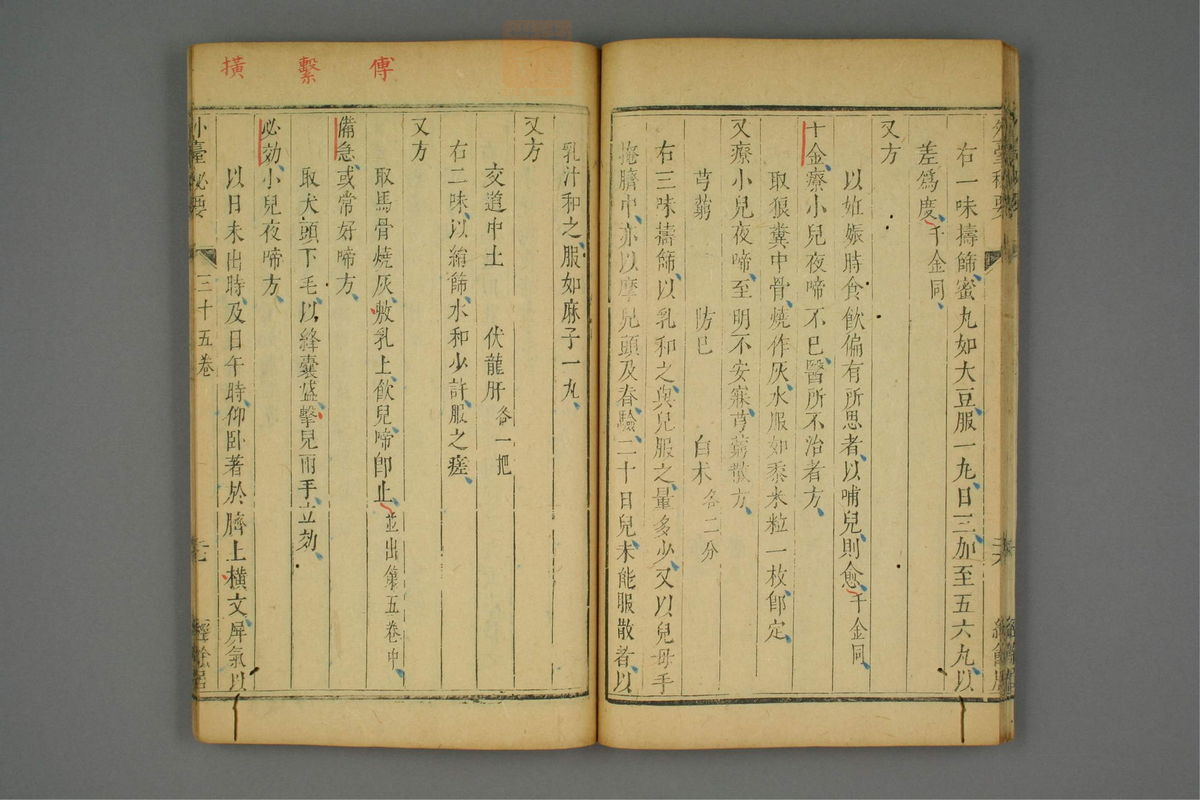 外臺秘要
右一味擣篩蜜丸如大豆服一丸日三加至五六丸以
差爲度千金同
又方
以姙娠時食飲偏有所思者以哺兒則愈千金同
千金療小兒夜啼不已醫所不治者方
取狼糞中骨燒作灰水服如黍米粒一枚卽定
又療小兒夜啼至明不安寐芎藭散方
芎藭 防已 白朮各二分
右三味擣篩以乳和之與兒服之量多少又以兒母手
掩臍中亦以摩兒頭及脊驗二十日兒未能服散者以
乳汁和之服如麻子一丸
又方
交道中土 伏龍肝各一把
右二味以絹篩水和少許服之瘥
又方
取馬骨燒灰敷乳上飲兒啼卽止並出第五卷中
備急或常好啼方
取犬頭下毛以絳囊盛擊兒兩手立効
必効小兒夜啼方
以日未出時及日午時仰臥著於臍上橫文屏氣以
外臺秘要 三十五卷 經餘居
傅
繫
橫